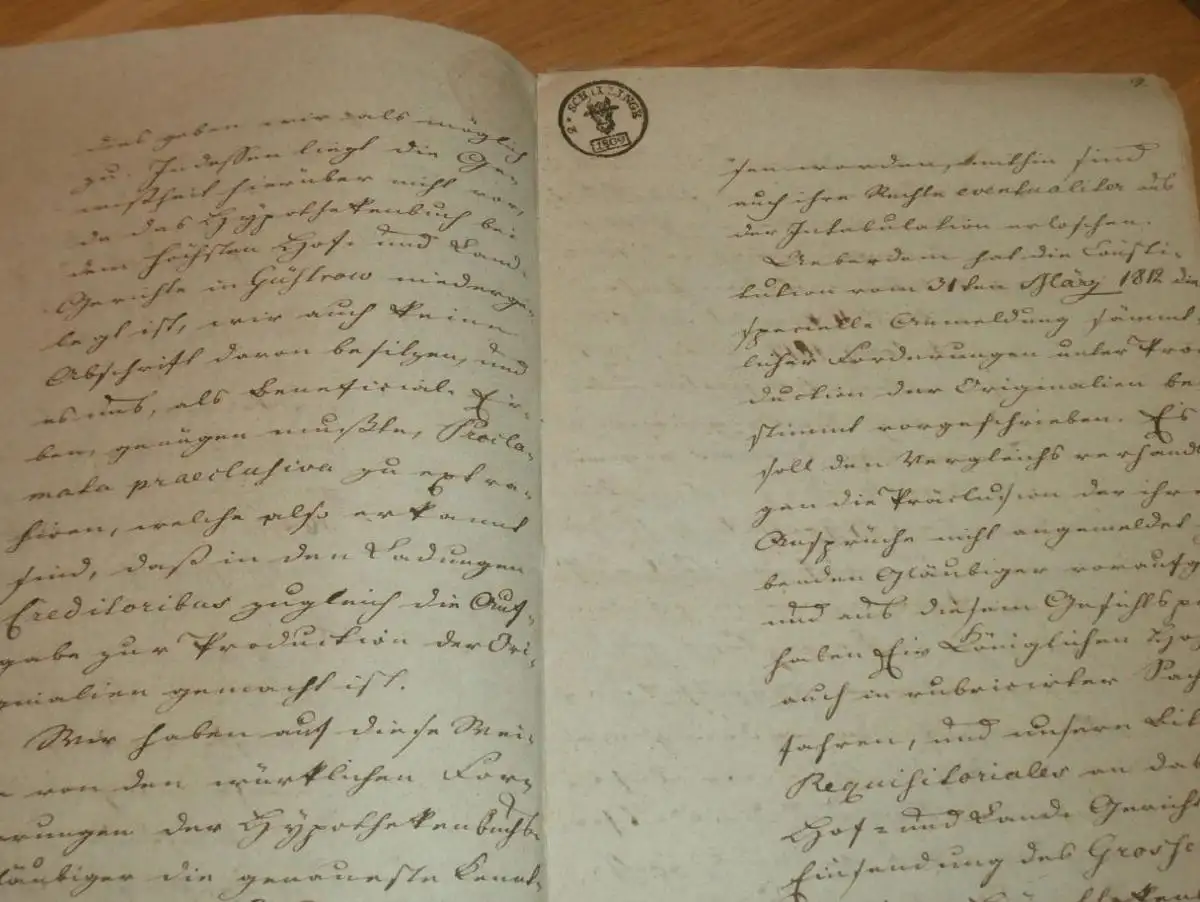 das geben wir als möglich
zu. Indessen liegt die Ge-
wißheit hierüber nicht vor,
da das Hÿpothekenbuch bei
dem höchsten Hof- und Land-
Gerichte in Güstrow niederge-
legt ist, wir auch keine
Abschrift davon besitzen, und
es uns, als Beneficial-Er-
ben, genügen mußte, Procla-
mata praeclusiva zu extra-
hiren, welche also erkannt
sind, daß in den Ladungen
Creditoribus zugleich die Auf-
gabe zur Production der Ori-
ginalien gemacht ist.
Wir haben auf diese Wei-
von den würklichen For-
erungen der Hÿpothekenbuchs-
läubiger die genaueste Kennt-
2 * SCHILLINGE
1809
sen worden, mithin sind
auch ihre Rechte eventualiter aus
der Intabulation erloschen.
Ueberdem hat die Consti-
tution vom 31ten März 1812 die
specielle Anmeldung sämmt-
licher Forderungen unter Pro-
duction der Originalien be
stimmt vorgeschrieben. Es
soll den Vergleichs verhand
gen die Präclusion der ihre
Ansprüche nicht angemeldet
benden Gläubiger voraufg
und aus diesem Gesichtsp
haben Ew Königlichen Ho
auch in rubricirter Sach
fahren, und unsere Bit
Requisitoriales an das
Hof- und Land-Gericht
Einsendung des Grosse